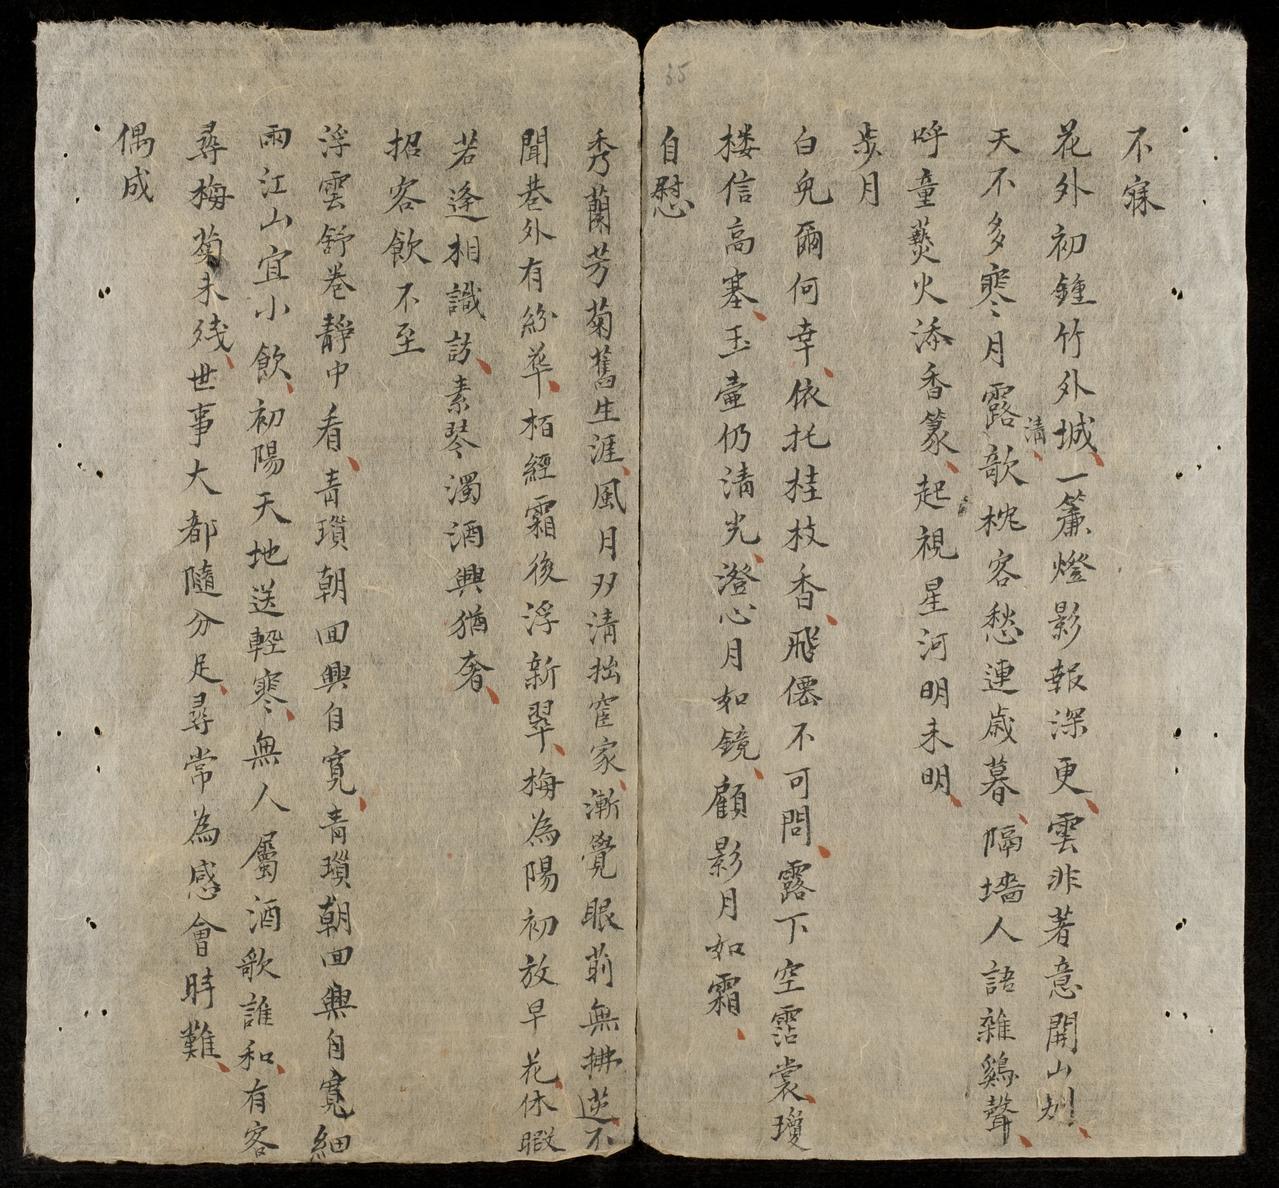 35
不寐
花外初鍾竹外城一簾燈影報深更雲非著意開山別
清
天不多寒月露欹枕客愁連歳暮隔墻人語雜鷄聲
呼童爇火添香篆起視星河明未明
步月
白免爾何幸依托桂枝香飛僊不可問露下空霑裳瓊
楼信高塞玉壷仍淸光澄心月如鏡顧影月如霜
自慰
秀蘭芳菊舊生涯風月双清拙宦家漸覺眼前無拂逆不
聞巷外有紛華栢經霜後浮新翠梅為陽初放早花休暇
若逄相識訪素琴濁酒興猶奢
招客飲不至
浮雲舒巻靜中看青瑣朝回興自寬青瑣朝回興自寬細
雨江山宜小飲初陽天地送輕寒無人屬酒歌誰和有客
尋梅菊未残世事大都隨分足尋常為感會時難
偶成